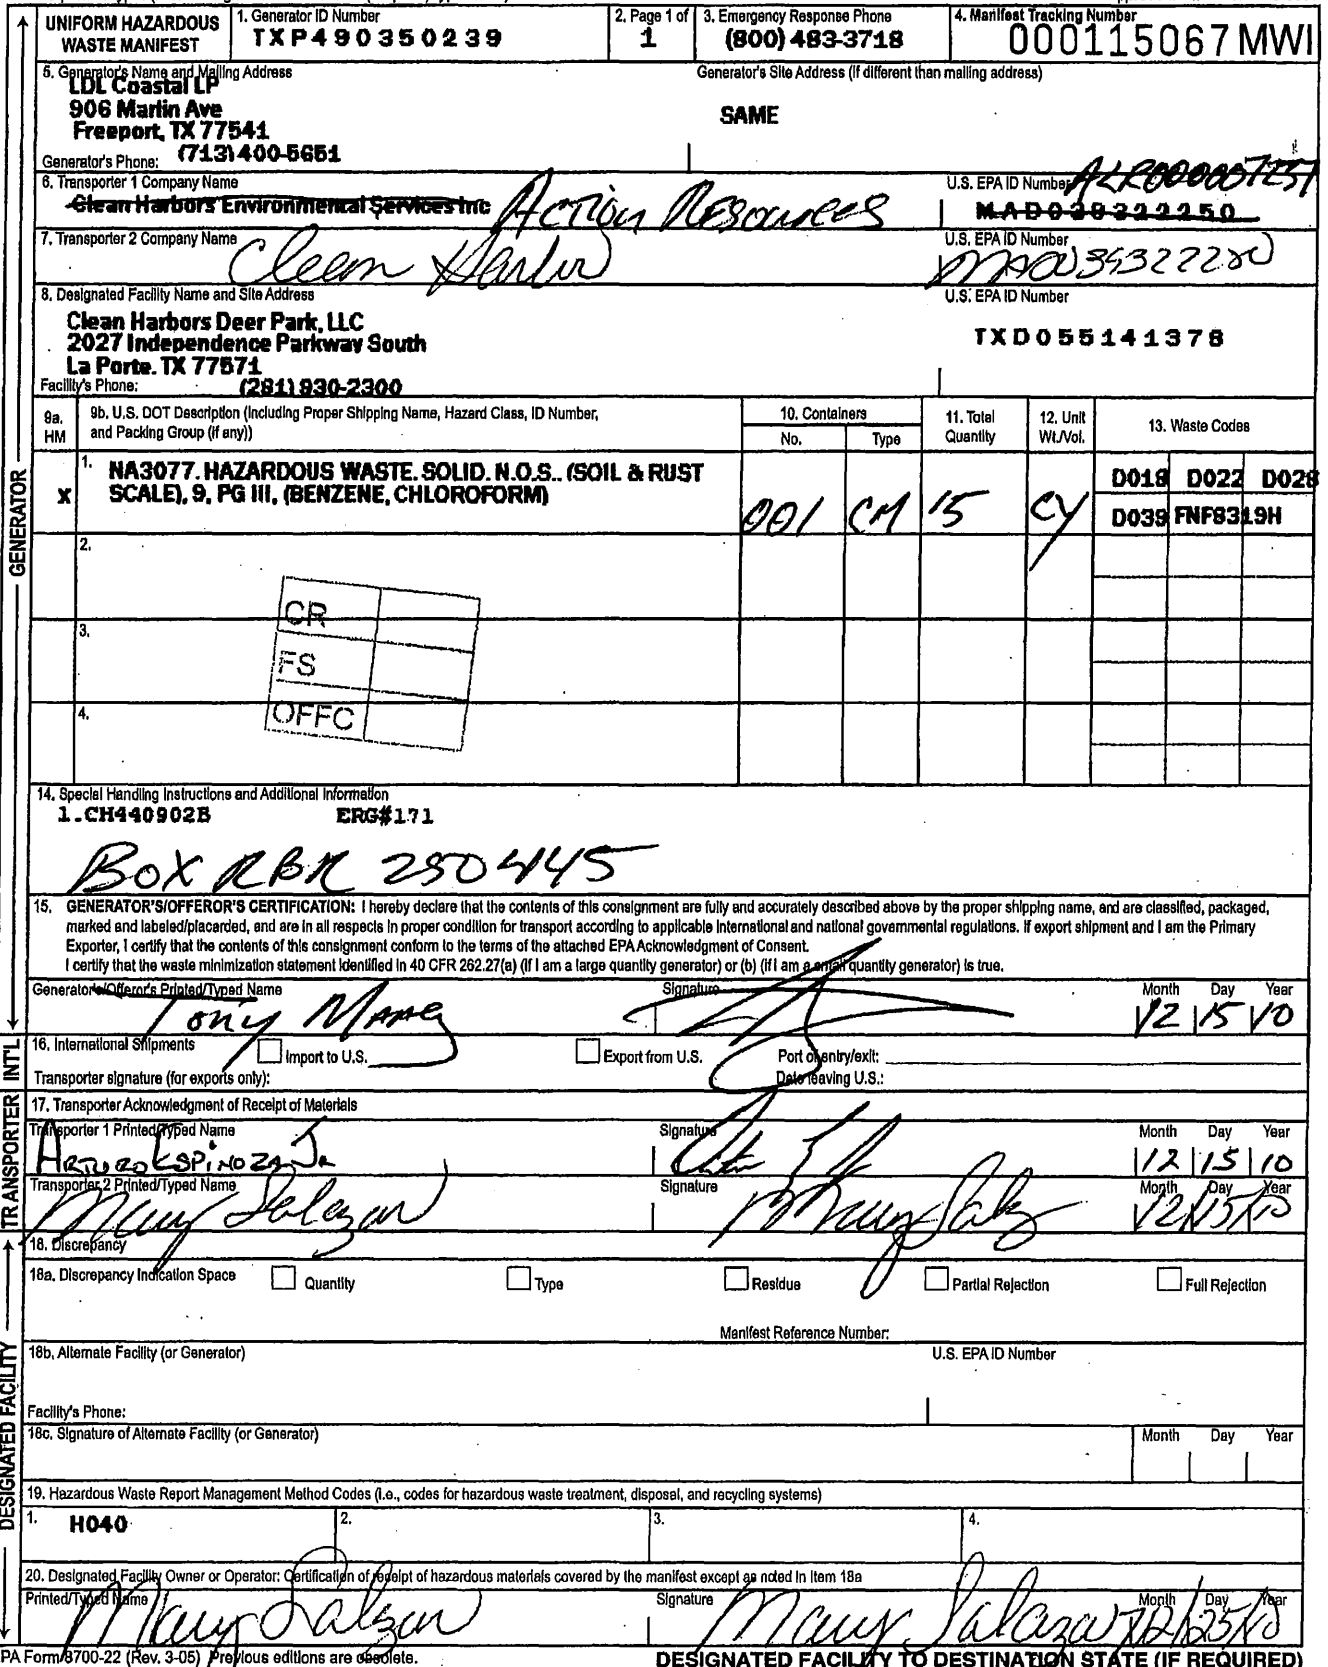 UNIFORM HAZARDOUS WASTE MANIFEST
1. Generator ID Number
TXP490350239
2. Page 1 of
1
3. Emergency Response Phone
(800) 483-3718
4. Manifest Tracking Number
000115067 MWI
5. Generator's Name and Mailing Address
LDL Coastal LP
906 Marlin Ave
Freeport, TX 77541
Generator's Phone: (713) 400-5651
Generator's Site Address (if different than mailing address)
SAME
6. Transporter 1 Company Name
Clean Harbors Environmental Services Inc Action Resources
U.S. EPA ID Number
ALR000007237
MAD039322250
7. Transporter 2 Company Name
Clean Harbor
U.S. EPA ID Number
8. Designated Facility Name and Site Address
Clean Harbors Deer Park, LLC
2027 Independence Parkway South
La Porte. TX 77571
Facility's Phone: (281) 930-2300
U.S. EPA ID Number
TXD055141378
9a. HM
9b. U.S. DOT Description (Including Proper Shipping Name, Hazard Class, ID Number, and Packing Group (if any))
10. Containers
No.
Type
11. Total Quantity
12. Unit Wt./Vol.
13. Waste Codes
X
1. NA3077. HAZARDOUS WASTE. SOLID. N.O.S.. (SOIL & RUST
SCALE), 9, PG III, (BENZENE, CHLOROFORM)
001 CM 15 CY
D018 D022 D028
D039 FNF8319H
2.
3.
4.
CR
FS
OFFC
14. Special Handling Instructions and Additional Information
1.CH440902B ERG#171
BOX RBR 250445
15. GENERATOR'S/OFFEROR'S CERTIFICATION: I hereby declare that the contents of this consignment are fully and accurately described above by the proper shipping name, and are classified, packaged,
marked and labeled/placarded, and are in all respects in proper condition for transport according to applicable international and national governmental regulations. If export shipment and I am the Primary
Exporter, I certify that the contents of this consignment conform to the terms of the attached EPA Acknowledgment of Consent.
I certify that the waste minimization statement identified in 40 CFR 262.27(a) (if I am a large quantity generator) or (b) (if I am a small quantity generator) is true.
Generator's/Offeror's Printed/Typed Name
Tony
Signature
Month Day Year
12 15 10
16. International Shipments
Import to U.S.
Export from U.S.
Port of entry/exit:
Transporter signature (for exports only):
Date leaving U.S.:
17. Transporter Acknowledgment of Receipt of Materials
Transporter 1 Printed/Typed Name
Arturo Espinoza Jr
Signature
Month Day Year
12 15 10
Transporter 2 Printed/Typed Name
Mary Salazar
Signature
Month Day Year
12 15 10
18. Discrepancy
18a. Discrepancy Indication Space
Quantity
Type
Residue
Partial Rejection
Full Rejection
Manifest Reference Number:
18b. Alternate Facility (or Generator)
U.S. EPA ID Number
Facility's Phone:
18c. Signature of Alternate Facility (or Generator)
Month Day Year
19. Hazardous Waste Report Management Method Codes (i.e., codes for hazardous waste treatment, disposal, and recycling systems)
1. H040
2.
3.
4.
20. Designated Facility Owner or Operator: Certification of receipt of hazardous materials covered by the manifest except as noted in Item 18a
Printed/Typed Name
Mary Salazar
Signature
Mary Salazar
Month Day Year
12 25 10
PA Form 8700-22 (Rev. 3-05) Previous editions are obsolete.
DESIGNATED FACILITY TO DESTINATION STATE (IF REQUIRED)
GENERATOR
INT'L
TRANSPORTER
DESIGNATED FACILITY